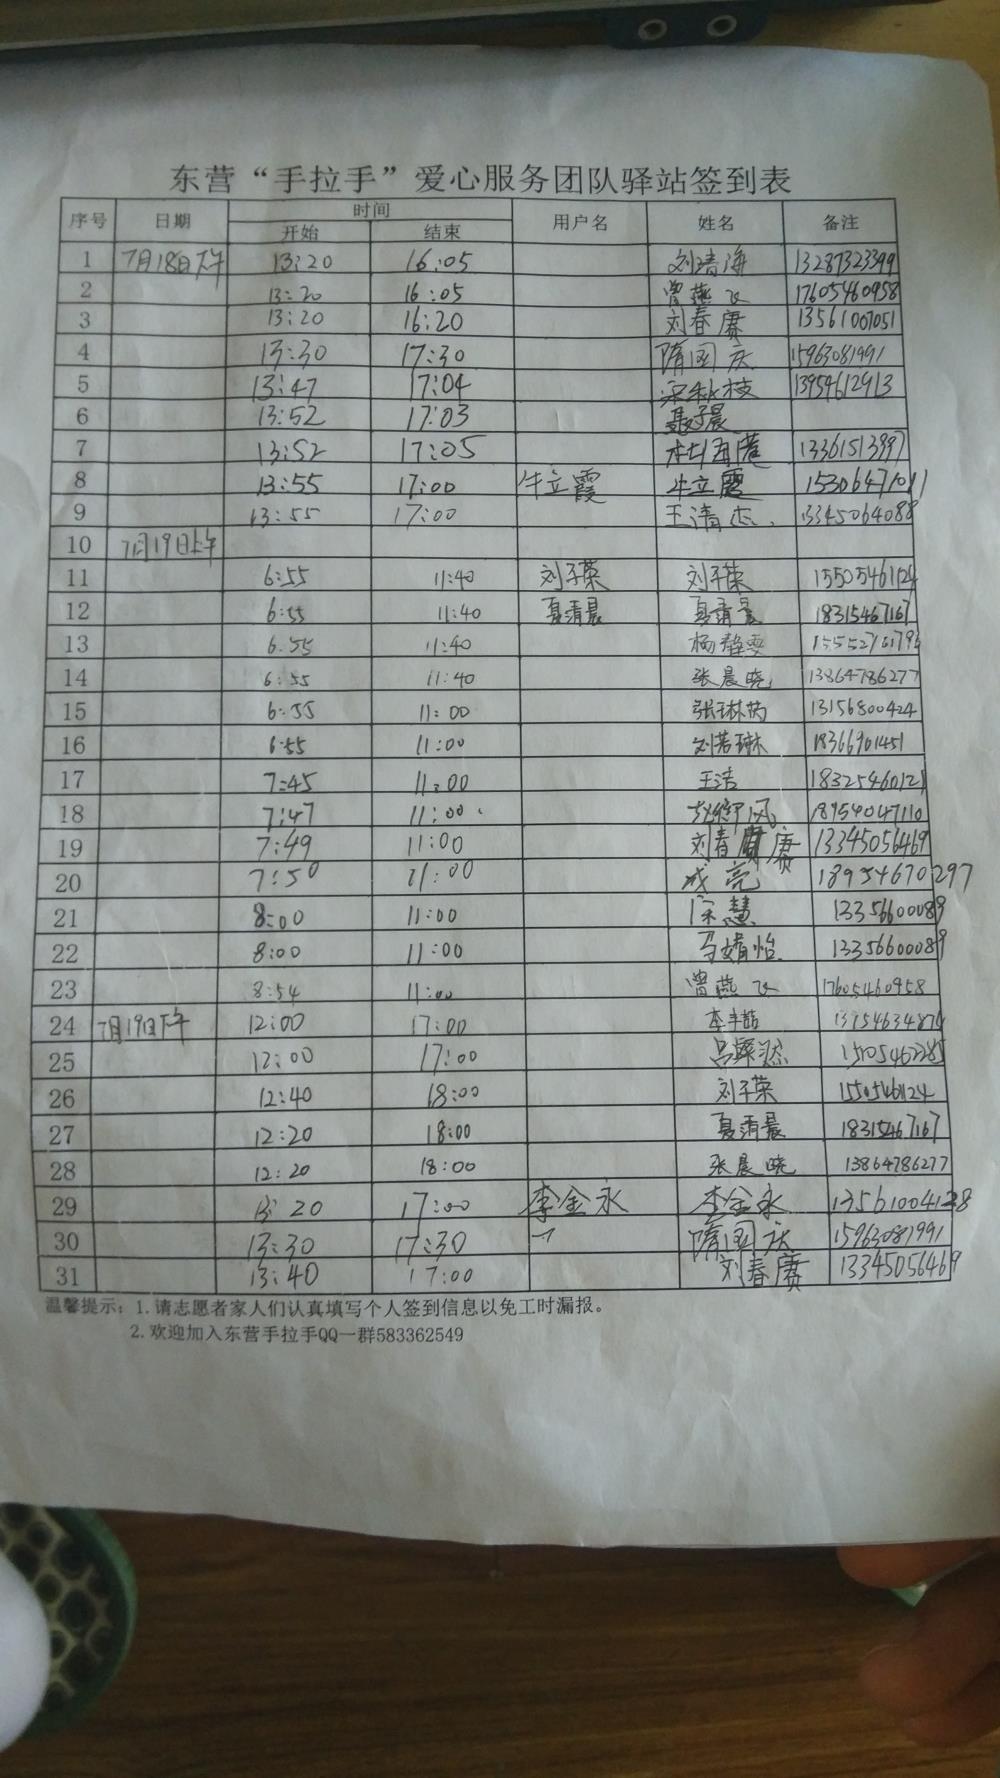 东营“手拉手”爱心服务团队驿站签到表
序号 日期 时间 用户名 姓名 备注
开始 结束
1 7月18日下午 13:20 16:05 刘清海 13287323399
2 13:20 16:05 曾燕飞 17605460958
3 13:20 16:20 刘春赛 13561007051
4 13:30 17:30 隋国庆 15963081991
5 13:47 17:04 宋秋枝 13954612913
6 13:52 17:03 聂子晨
7 13:52 17:05 13361513997
8 13:55 17:00 牛立霞 牛立霞 15306471011
9 13:55 17:00 王清杰 13345064088
10 7月19日上午
11 6:55 11:40 刘子荣 刘子荣 15505461124
12 6:55 11:40 夏清晨 夏清晨 18315467167
13 6:55 11:40 杨静雯
14 6:55 11:40 张晨晓 13864786277
15 6:55 11:00 张琳芮 13156800424
16 6:55 11:00 刘若琳 18366901451
17 7:45 11:00 王洁 18325460121
18 7:47 11:00 18954047110
19 7:49 11:00 刘春赛 13345056469
20 7:50 11:00 成亮 18954670297
21 8:00 11:00 宋慧 13356600089
22 8:00 11:00 马婧怡 13356600089
23 8:54 11:00 曾燕飞 17605460958
24 7月19日下午 12:00 17:00
25 12:00 17:00
26 12:40 18:00 刘子荣 15505461124
27 12:20 18:00 夏清晨 18315467167
28 12:20 18:00 张晨晓 13864786277
29 13:20 17:00 李金永 李金永
30 13:30 17:30 隋国庆 15963081991
31 13:40 17:00 刘春赛 13345056469
温馨提示：1.请志愿者家人们认真填写个人签到信息以免工时漏报。
2.欢迎加入东营手拉手QQ一群583362549